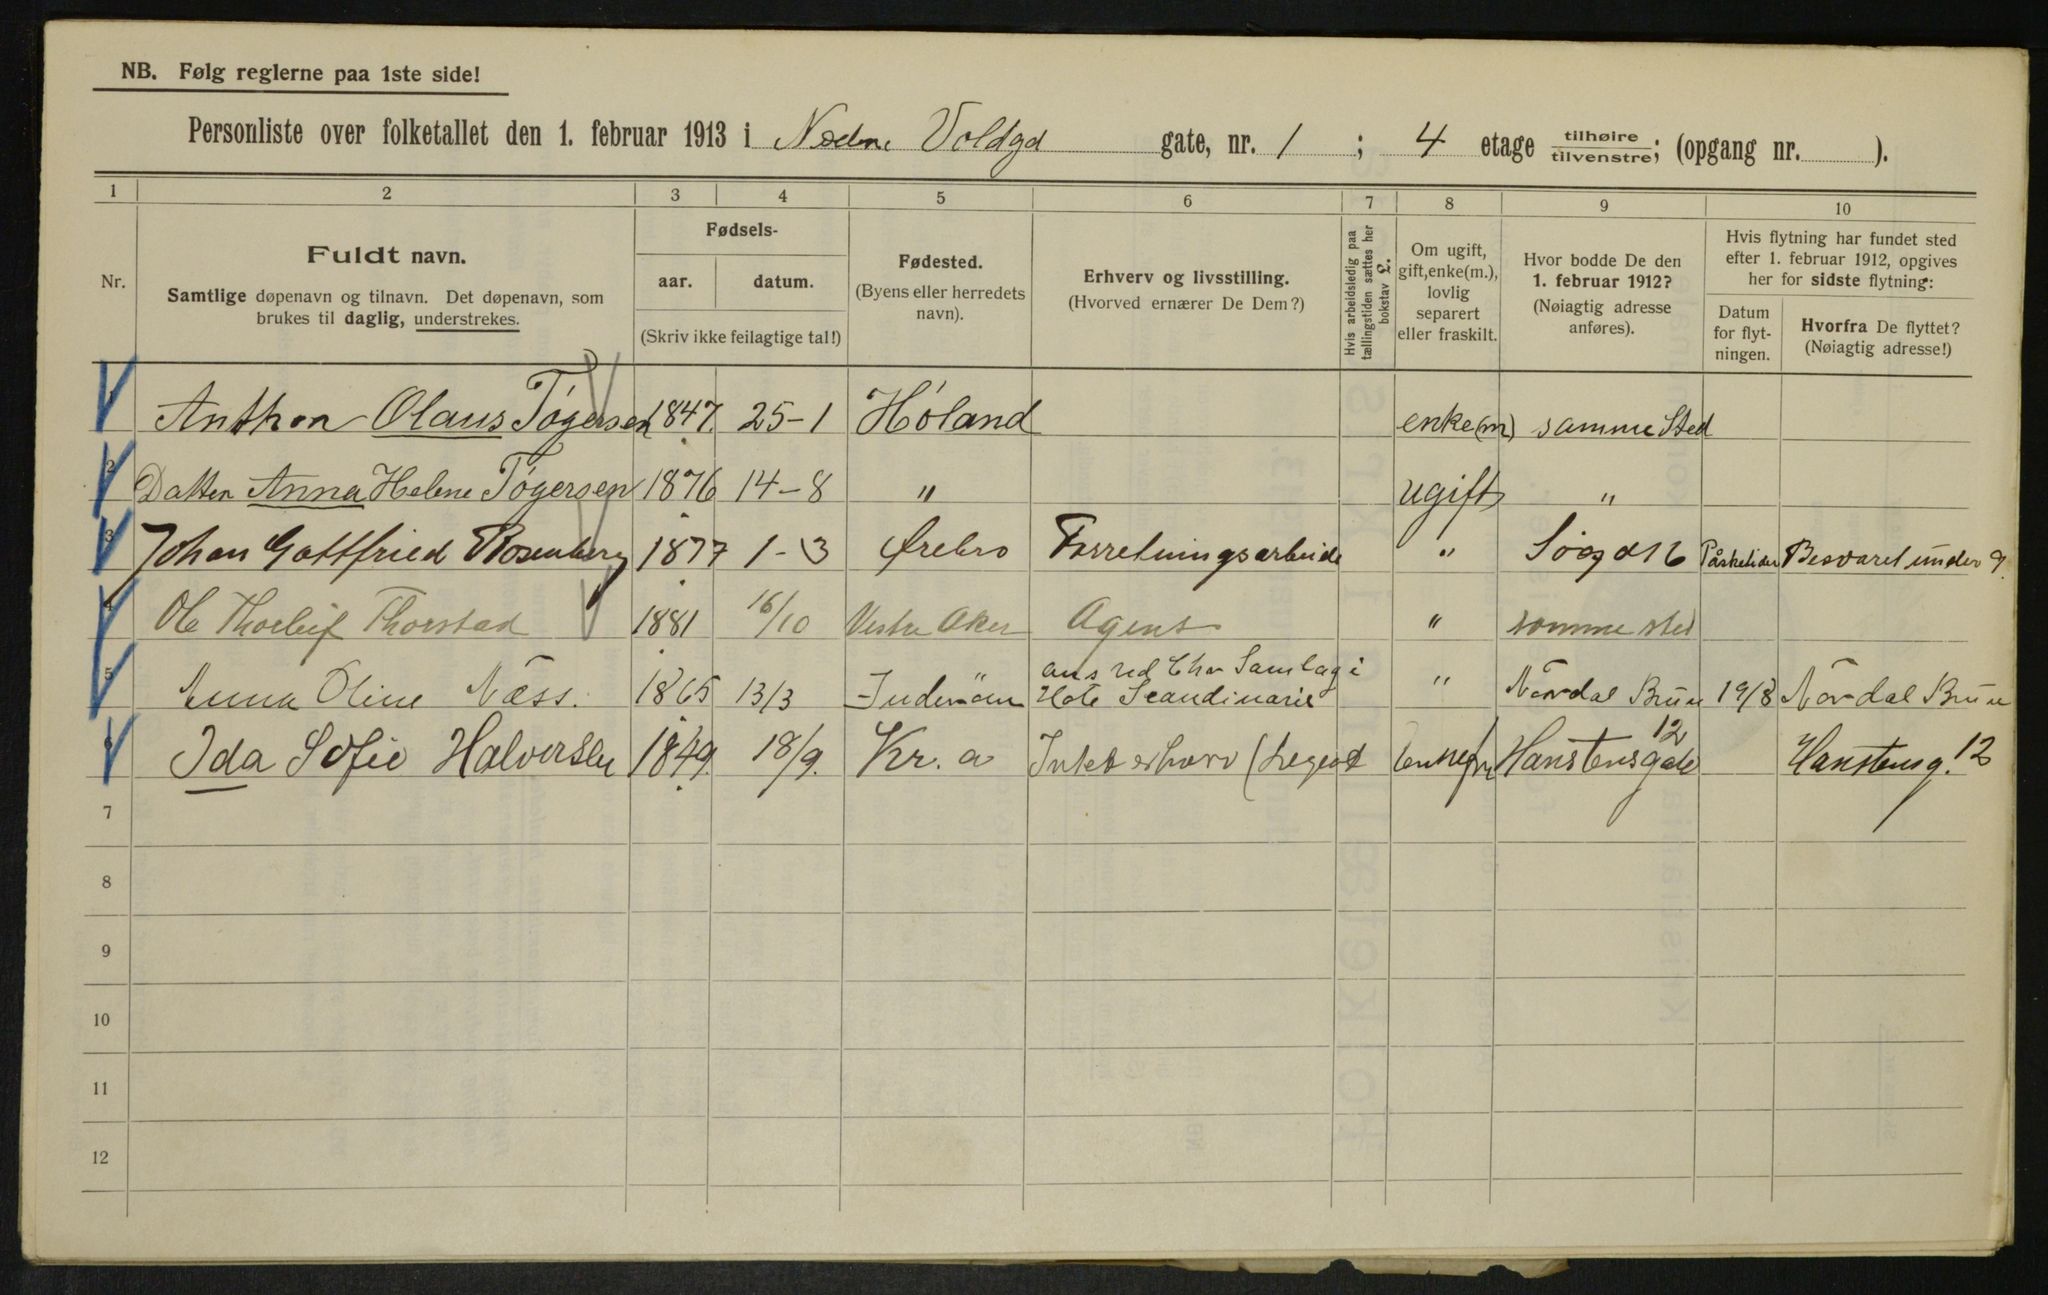 NB. Følg reglerne paa 1ste side!
Personliste over folketallet den 1. februar 1913 i Nedre Voldgd gate, nr. 1 ; 4 etage tilhøire tilvenstre; (opgang nr. ).
1 2 3 4 5 6 7 8 9 10
Nr.
Fuldt navn.
Samtlige døpenavn og tilnavn. Det døpenavn, som
brukes til daglig, understrekes.
Fødsels-
aar. datum.
(Skriv ikke feilagtige tal!)
Fødested.
(Byens eller herredets
navn).
Erhverv og livsstilling.
(Hvorved ernærer De Dem?)
Hvis arbeidsledig paa
tællingstiden sættes her
bokstav £.
Om ugift,
gift, enke(m.),
lovlig
separert
eller fraskilt.
Hvor bodde De den
1. februar 1912?
(Nøiagtig adresse
anføres).
Hvis flytning har fundet sted
efter 1. februar 1912, opgives
her for sidste flytning:
Datum
for flyt-
ningen.
Hvorfra De flyttet?
(Nøiagtig adresse!)
1 Anthon Olaus Tøgersen 1847 25-1 Høland enke(m) samme Sted
2 Datter Anna Helene Tøgersen 1876 14-8 " ugift "
3 Johan Gottfried Rosenberg 1877 1-3 Ørebro Forretningsarbeide " Søgd 16 Påsketider Besvaret under 9.
4 Ole Thorleif Thorstad 1881 16/10 Vestre Aker Agent " samme sted
5 Anna Oline Næss. 1865 13/3 Inderøen ans ved Samlag i Hote Scandinavie " Nordal Brun 19/8 Nordal Brun
6 Ida Sofie Halversen 1849. 18/9. Kr. a Intet erhverv (Legat Hanstensgate 12 Hanstensg. 12
7
8
9
10
11
12